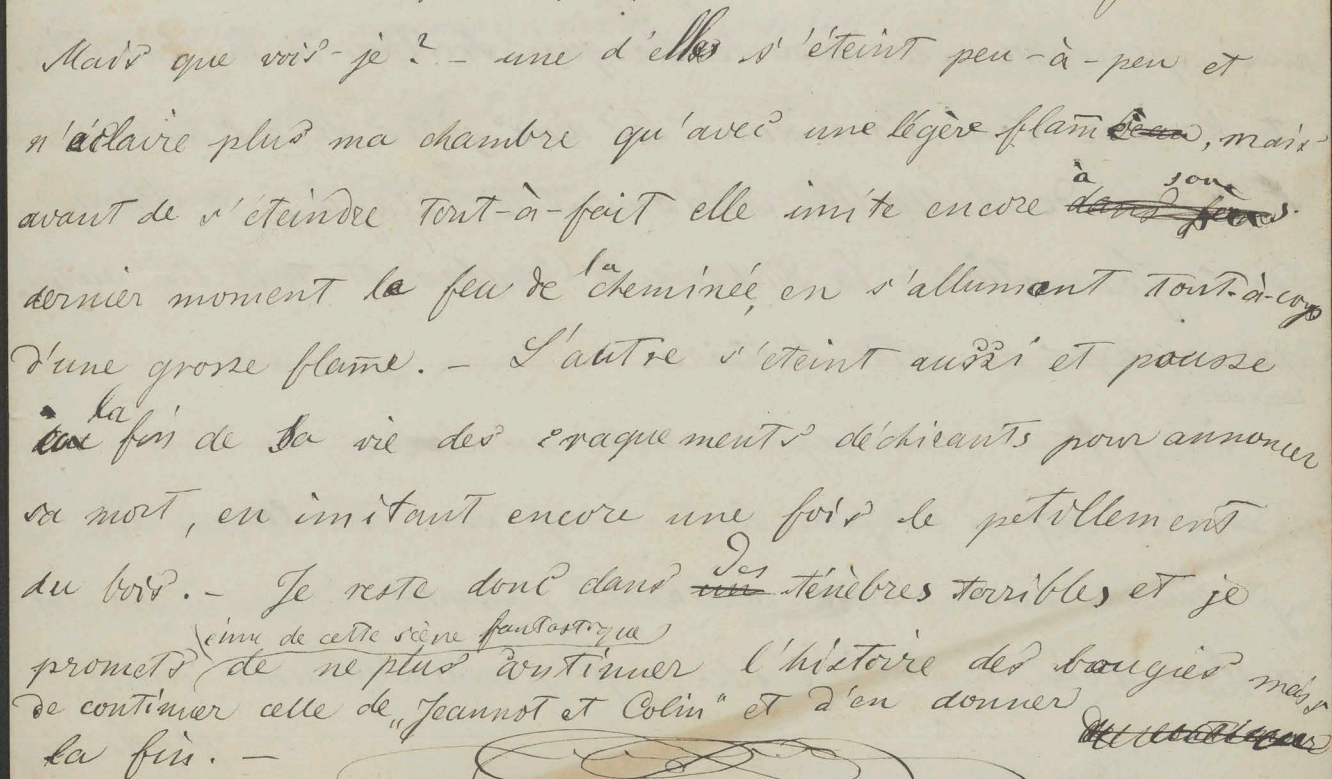 Mais que vois-je? – une d'elles s'éteint peu-à-peu et
n'éclaire plus ma chambre qu'avec une légère flam̄e, mais
avant de s'éteindre tout-à-fait elle imite encore à son
dernier moment le feu de la cheminée, en s'allumant tout-à-coup
d'une grosse flam̄e. – L'autre s'éteint aussi et pousse
à la fin de sa vie des craquements déchirants pour annoncer
sa mort, en imitant encore une fois le petillement
du bois. – Je reste donc dans des ténèbres terribles et je
(émue de cette scène fantastique)
promets de ne plus continuer l'histoire des bougies mais
de continuer celle de „Jeannot et Colin" et d'en donner
la fin. –